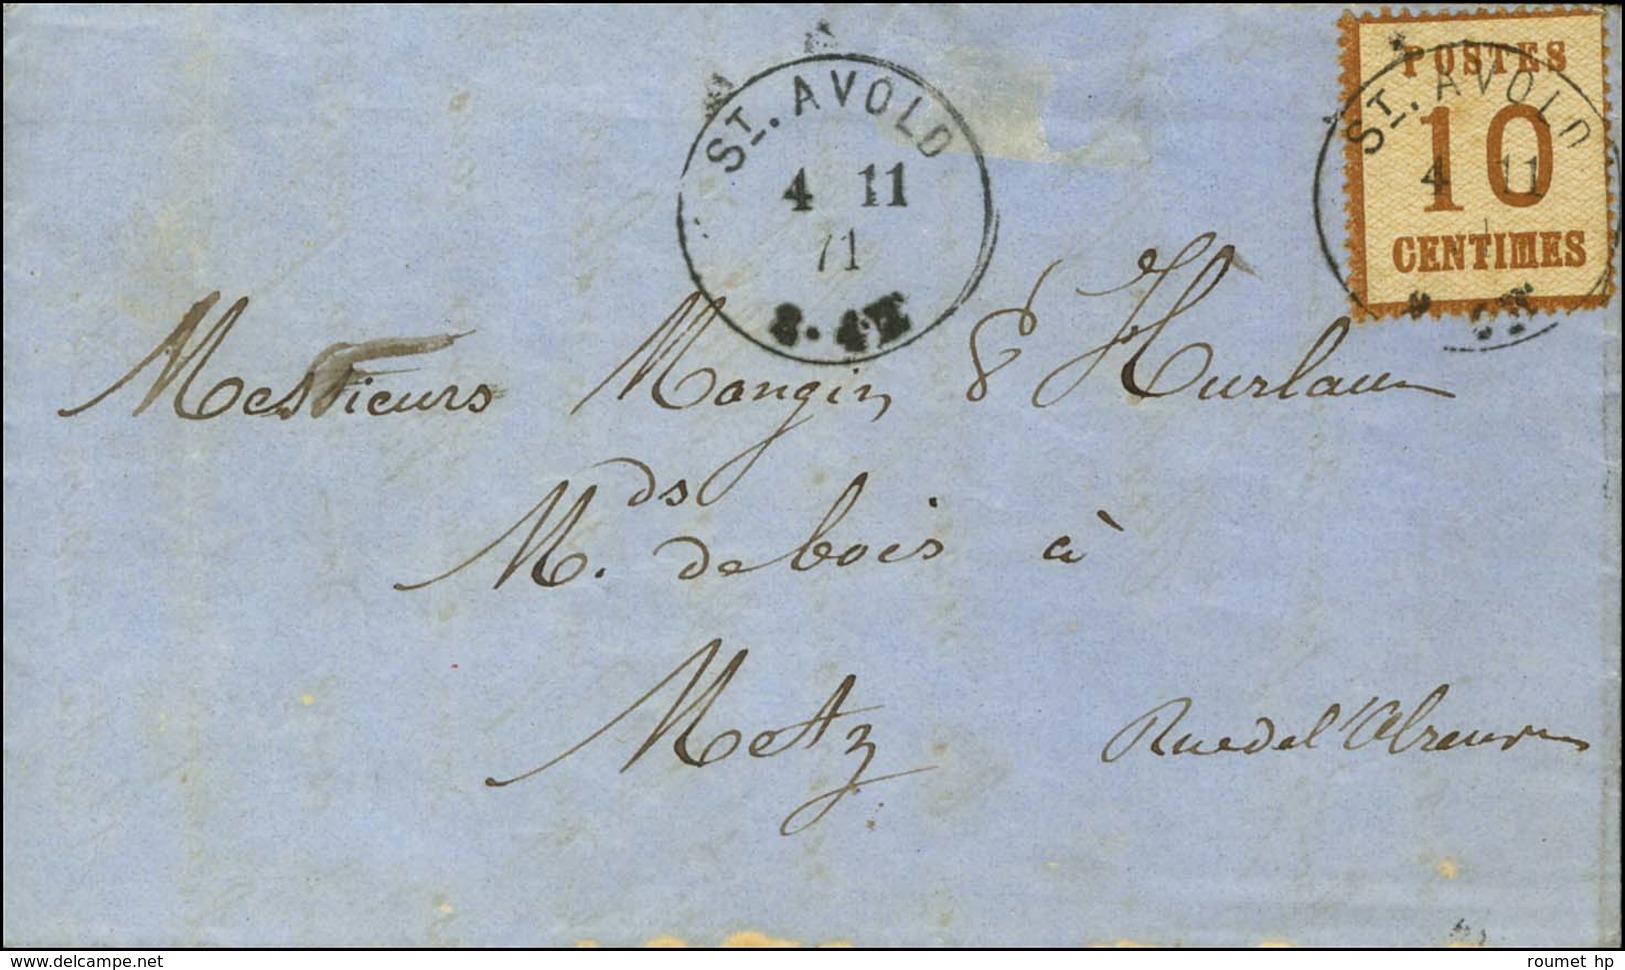 ST. AVOLD
4 11
71
POSTES
10
CENTIMES
ST. AVOLD
4 11
Messieurs Mangin & Hurlaux
Mds. de bois à
Metz Rue de l'
www.delcampe.net
roumet hp